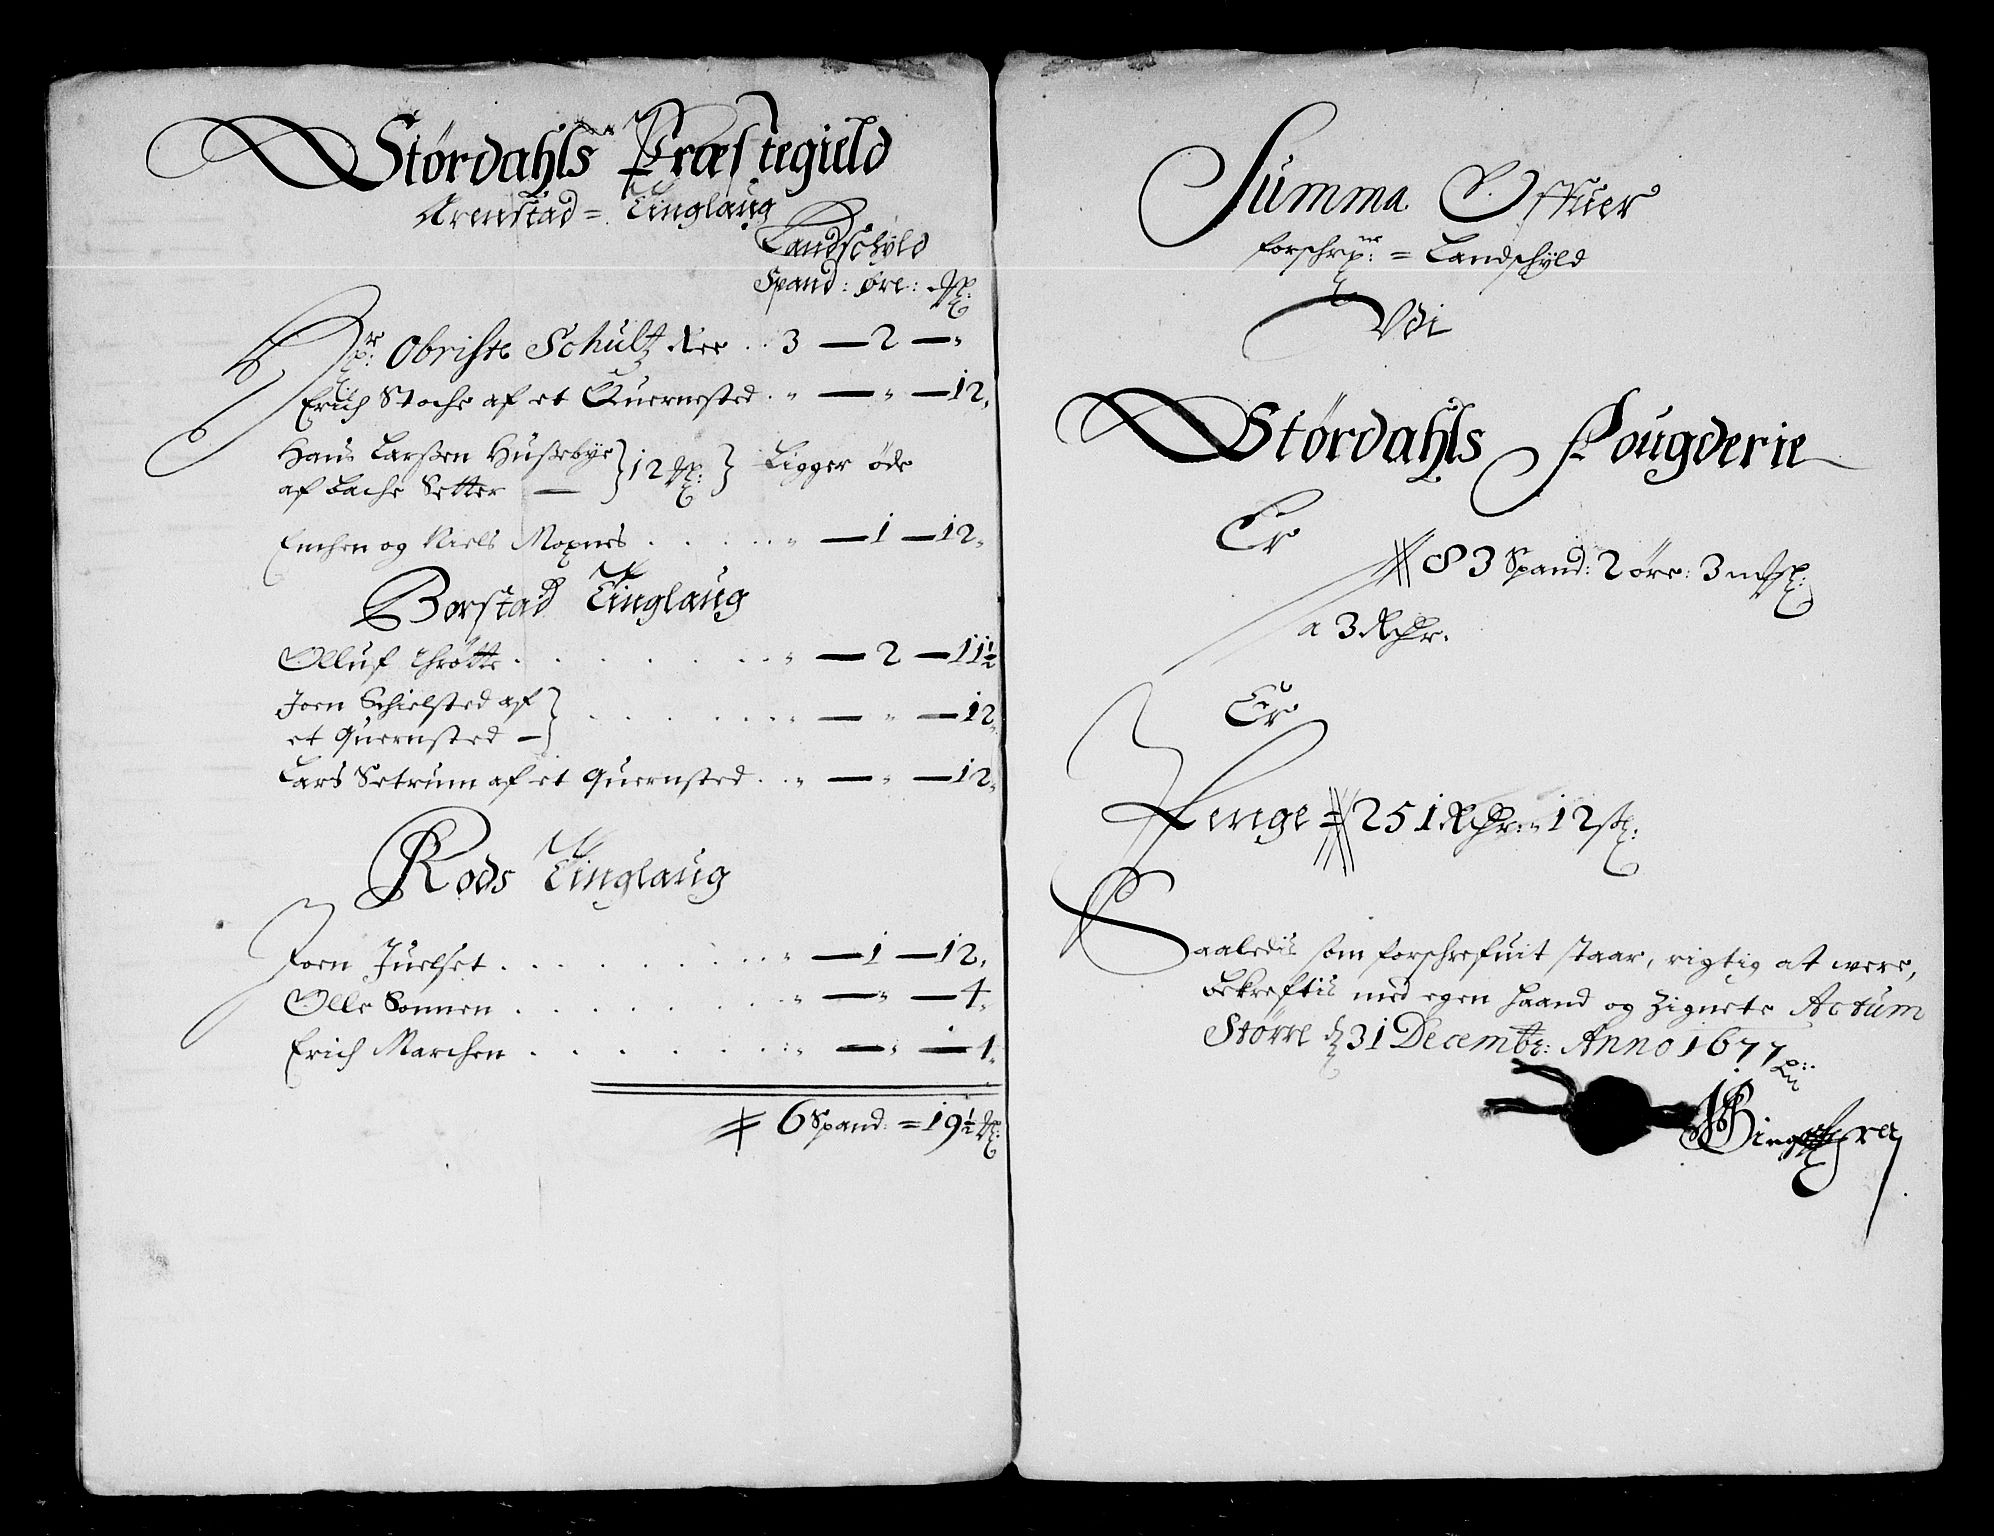 Størdahls Præstegield
Arenstad = Tinglaug
Landschyld
Spand: øre: 
Obriste Schultz 3 — 2 — "
Erich Stoche af et Quernested . " — " — 12,
Hans Larßen Husebye } 12 } Ligger öde
af Bache Setter —
Enchen og Niels Moxnes . . . . . " — 1 — 12,
Borstad Tinglaug
Olluf Throtte . . . . . . . . " — 2 — 11½
Joen Schielsted af } . . . . . . " — " — 12,
et Quernsted —
Lars Setrum af et Quernsted . . " — " — 12,
Røds Tinglaug
Joen Juelset . . . . . . . . " — 1 — 12,
Olle Sonnen . . . . . . . . " — " — 4,
Erich Marchen . . . . . . . . " — " — 1,
6 Spand: = 19½
Summa Offuer
forschr: = Landschyld
Vdi
Størdahls Fougderie
Er
83 Spand: 2 öre: 3
a 3 Rdr.
Er
Penge = 251 Rdr: " 12 s:
Saaledis som forschrefuit staar, rigtig at vere,
bekreftis med egen haand og Zignete Actum
Større d 31 Decembr: Anno 1677